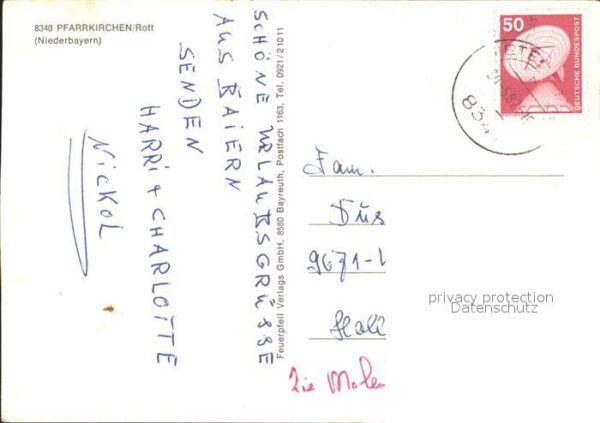 8340 PFARRKIRCHEN/Rott
(Niederbayern)
SCHÖNE URLAUBSGRÜSSE
AUS BAIERN
SENDEN
HARRI + CHARLOTTE
NICKOL
Feuerpfeil Verlags GmbH, 8580 Bayreuth, Postfach 1163, Tel. 0921/21011
50
DEUTSCHE BUNDESPOST
834
Fam.
Düs
9671-1
privacy protection
Datenschutz